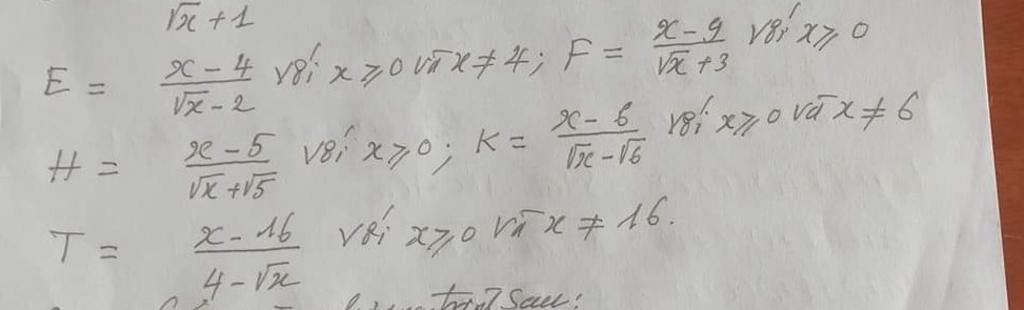 √x + 1
E = (x - 4)/(√x - 2) với x ≥ 0 và x ≠ 4; F = (x - 9)/(√x + 3) với x ≥ 0
H = (x - 5)/(√x + √5) với x ≥ 0; K = (x - 6)/(√x - √6) với x ≥ 0 và x ≠ 6
T = (x - 16)/(4 - √x) với x ≥ 0 và x ≠ 16.
trình sau: